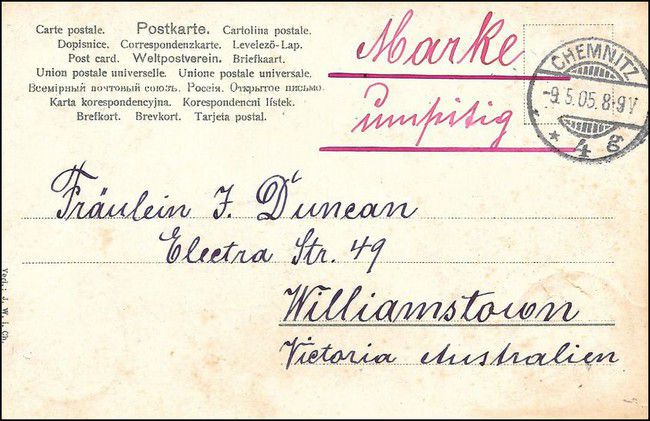 Carte postale. Postkarte. Cartolina postale.
Dopisnice. Correspondenzkarte. Levelező-Lap.
Post card. Weltpostverein. Briefkaart.
Union postale universelle. Unione postale universale.
Всемірный почтовый союзъ. Россія. Открытое письмо.
Karta korespondencyjna. Korespondencni lístek.
Brefkort. Brevkort. Tarjeta postal.
Marke
umsitig
CHEMNITZ
-9.5.05.8-9V
* 4 g
Fräulein J. Duncan
Electra Str. 49
Williamstown
Victoria Australien